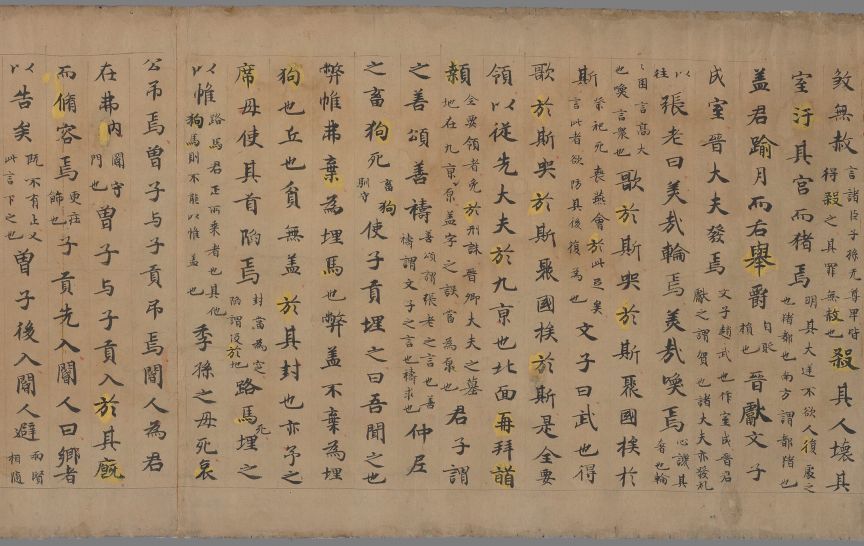 煞無赦言諸臣子孫无尊卑皆得殺之其罪無赦也殺其人壞其
室汙其宮而猪焉明其大逆不欲人復處之也猪都也南方謂都猪也
盖君踰月而后舉爵自貶損也晉獻文子
成室晉大夫發焉文子趙武也作室成晉君獻之謂賀也諸大夫亦發礼
以往張老曰美哉輪焉美哉喚焉心譏其奢也輪
〻囷言高大也喚言衆也歌於斯哭於斯聚國挨於
斯祭祀死喪燕會於此足矣言此者欲防其後復為也文子曰武也得
歌於斯哭於斯聚國挨於斯是全要
領以從先大夫於九京也北面再拜䭫
顙全要領者免於刑誅晉卿大夫之墓地在九京京盖字之誤當為原也君子謂
之善頌善禱善頌謂張老之言也善禱謂文子之言也禱求也仲尼
之畜狗死畜狗馴守使子貢埋之曰吾聞之也
弊帷弗棄為埋馬也弊盖不棄為埋
狗也丘也貧無盖於其封也亦予之
席毋使其首陷焉封當為窆陷謂没於地路馬死埋之
以帷路馬君正所乘者也其他狗馬則不能以帷盖也季孫之母死哀
公吊焉曽子与子貢吊焉閽人為君
在弗内閽守門也曽子与子貢入於其廐
而脩容焉更莊飾也子貢先入閽人曰鄉者
以告矣既不有止又此言下之也曽子後入閽人避兩賢相随